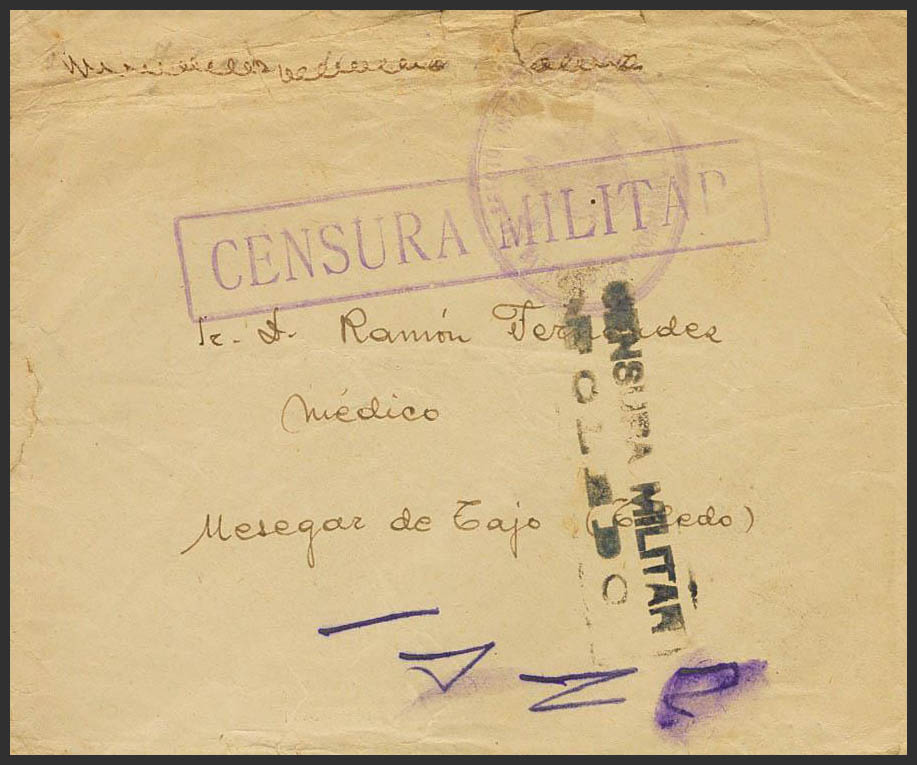 CENSURA MILITAR
Sr. D. Ramón Fernández
Médico
Mesegar de Tajo (Toledo)
CENSURA MILITAR
TOLEDO